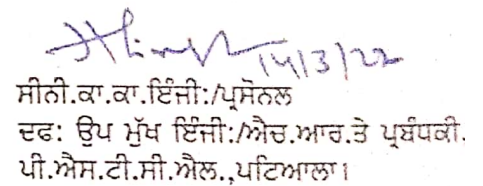 14/3/22
ਸੀਨੀ.ਕਾ.ਕਾ.ਇੰਜੀ:/ਪ੍ਰਸੋਨਲ
ਦਫ: ਉਪ ਮੁੱਖ ਇੰਜੀ:/ਐਚ.ਆਰ.ਤੇ ਪ੍ਰਬੰਧਕੀ.
ਪੀ.ਐਸ.ਟੀ.ਸੀ.ਐਲ.,ਪਟਿਆਲਾ।